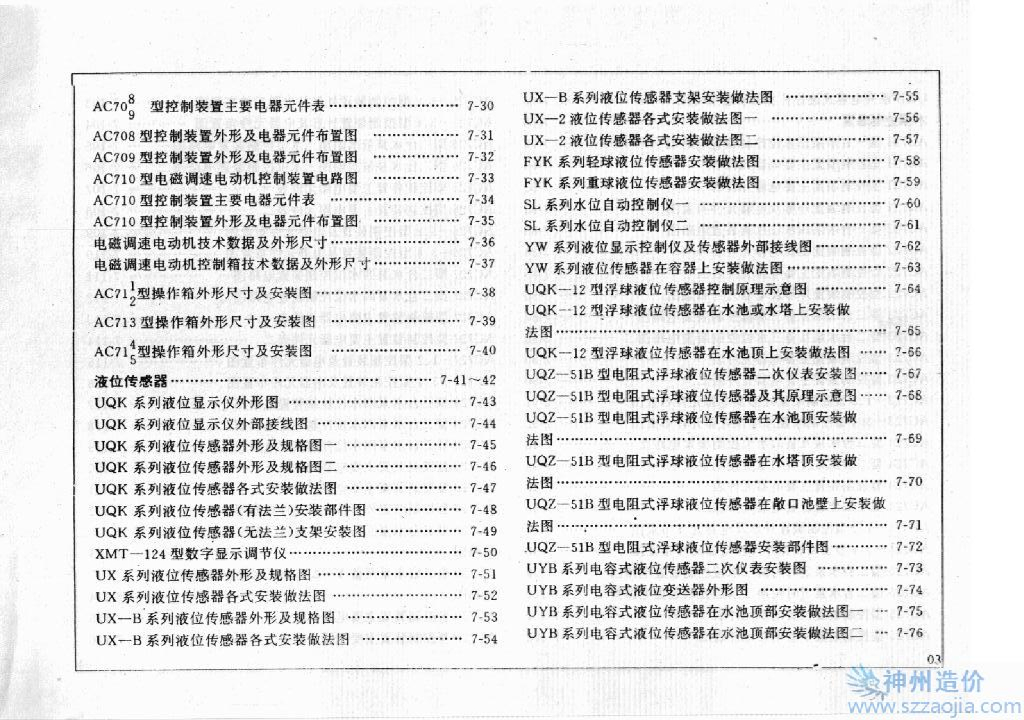 AC70 8/9 型控制装置主要电器元件表 …………………… 7-30
AC708 型控制装置外形及电器元件布置图 …………… 7-31
AC709 型控制装置外形及电器元件布置图 …………… 7-32
AC710 型电磁调速电动机控制装置电路图 …………… 7-33
AC710 型控制装置主要电器元件表 …………………… 7-34
AC710 型控制装置外形及电器元件布置图 …………… 7-35
电磁调速电动机技术数据及外形尺寸 …………………… 7-36
电磁调速电动机控制箱技术数据及外形尺寸 …………… 7-37
AC71 1/2 型操作箱外形尺寸及安装图 …………………… 7-38
AC713 型操作箱外形尺寸及安装图 …………………… 7-39
AC71 4/5 型操作箱外形尺寸及安装图 …………………… 7-40
液位传感器 …………………………………… 7-41～42
UQK 系列液位显示仪外形图 …………………………… 7-43
UQK 系列液位显示仪外部接线图 ……………………… 7-44
UQK 系列液位传感器外形及规格图一 ………………… 7-45
UQK 系列液位传感器外形及规格图二 ………………… 7-46
UQK 系列液位传感器各式安装做法图 ………………… 7-47
UQK 系列液位传感器(有法兰)安装部件图 …………… 7-48
UQK 系列液位传感器(无法兰)支架安装图 …………… 7-49
XMT—124 型数字显示调节仪 ………………………… 7-50
UX 系列液位传感器外形及规格图 ……………………… 7-51
UX 系列液位传感器各式安装做法图 …………………… 7-52
UX—B 系列液位传感器外形及规格图 ………………… 7-53
UX—B 系列液位传感器各式安装做法图 ……………… 7-54
UX—B 系列液位传感器支架安装做法图 ……………… 7-55
UX—2 液位传感器各式安装做法图一 ………………… 7-56
UX—2 液位传感器各式安装做法图二 ………………… 7-57
FYK 系列轻球液位传感器安装做法图 ………………… 7-58
FYK 系列重球液位传感器安装做法图 ………………… 7-59
SL 系列水位自动控制仪一 …………………………… 7-60
SL 系列水位自动控制仪二 …………………………… 7-61
YW 系列液位显示控制仪及传感器外部接线图 ………… 7-62
YW 系列液位传感器在容器上安装做法图 ……………… 7-63
UQK—12 型浮球液位传感器控制原理示意图 ………… 7-64
UQK—12 型浮球液位传感器在水池或水塔上安装做
法图 ……………………………………………… 7-65
UQK—12 型浮球液位传感器在水池顶上安装做法图 …… 7-66
UQZ—51B 型电阻式浮球液位传感器二次仪表安装图 …… 7-67
UQZ—51B 型电阻式浮球液位传感器及其原理示意图 …… 7-68
UQZ—51B 型电阻式浮球液位传感器在水池顶安装做
法图 ……………………………………………… 7-69
UQZ—51B 型电阻式浮球液位传感器在水塔顶安装做
法图 ……………………………………………… 7-70
UQZ—51B 型电阻式浮球液位传感器在敞口池壁上安装做
法图 ……………………………………………… 7-71
UQZ—51B 型电阻式浮球液位传感器安装部件图 ……… 7-72
UYB 系列电容式液位传感器二次仪表安装图 ………… 7-73
UYB 系列电容式液位变送器外形图 …………………… 7-74
UYB 系列电容式液位传感器在水池顶部安装做法图一 … 7-75
UYB 系列电容式液位传感器在水池顶部安装做法图二 … 7-76
03
神州造价
www.szzaojia.com